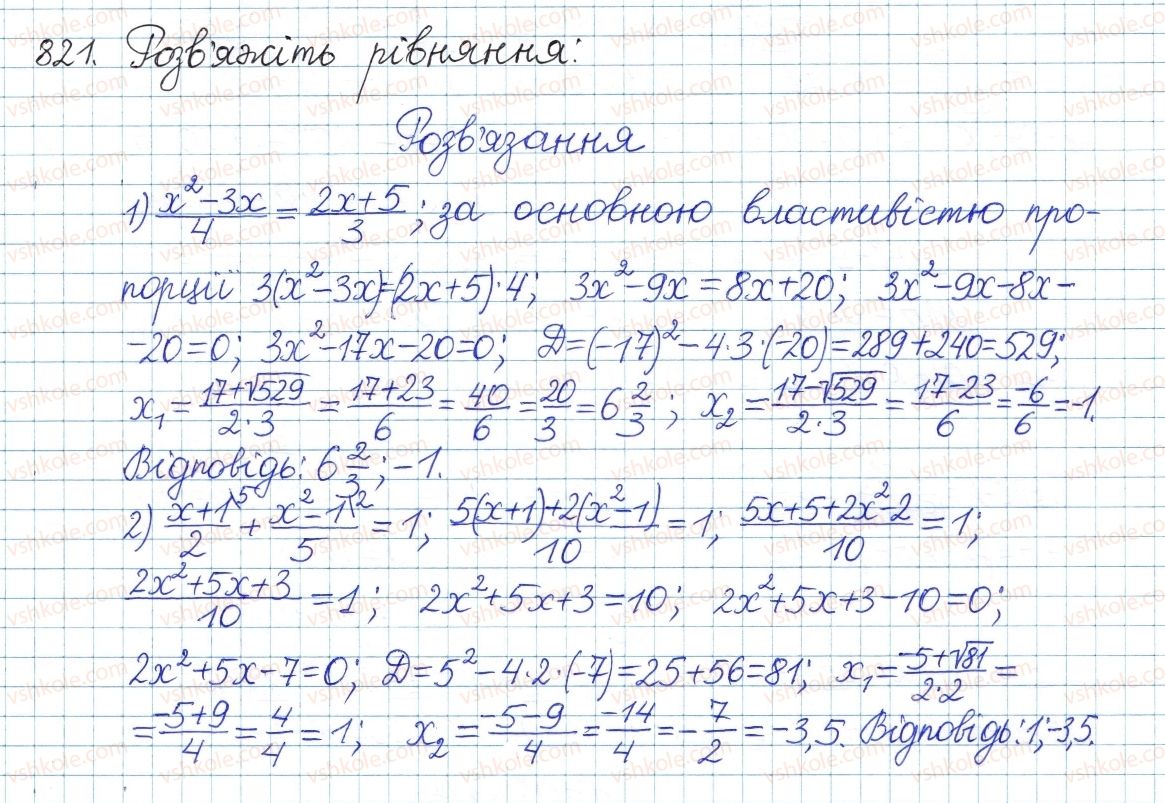 821. Розв'яжіть рівняння:
Розв'язання
1) (x²-3x)/4 = (2x+5)/3; за основною властивістю про-
порції 3(x²-3x)=(2x+5)·4; 3x²-9x=8x+20; 3x²-9x-8x-
-20=0; 3x²-17x-20=0; Д=(-17)²-4·3·(-20)=289+240=529;
x₁=(17+√529)/(2·3)=(17+23)/6=40/6=20/3=6 2/3; x₂=(17-√529)/(2·3)=(17-23)/6=-6/6=-1.
Відповідь: 6 2/3; -1.
2) (x+1)/2 \5 + (x²-1)/5 \2 = 1; (5(x+1)+2(x²-1))/10=1; (5x+5+2x²-2)/10=1;
(2x²+5x+3)/10=1; 2x²+5x+3=10; 2x²+5x+3-10=0;
2x²+5x-7=0; Д=5²-4·2·(-7)=25+56=81; x₁=(-5+√81)/(2·2)=
=(-5+9)/4=4/4=1; x₂=(-5-9)/4=-14/4=-7/2=-3,5. Відповідь: 1; -3,5.